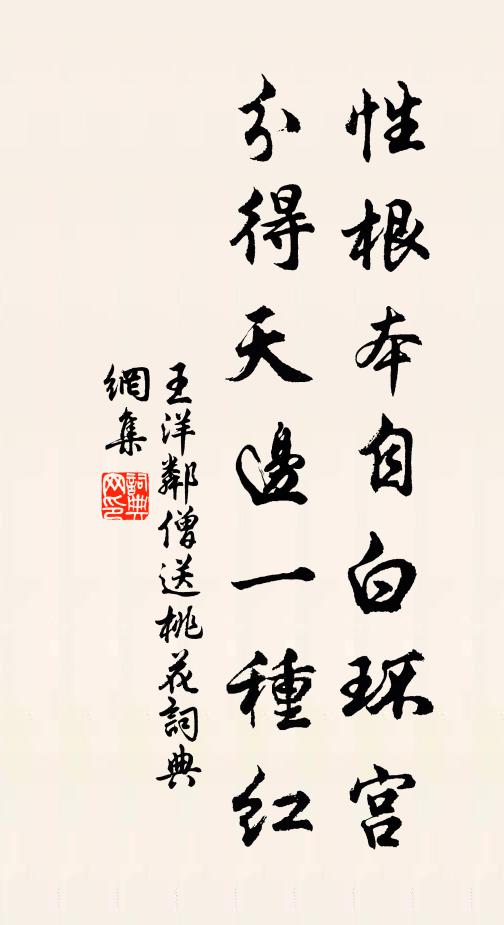 性根本自白环宫
分得天邊一種紅
王洋鄰僧送桃花詞典
網集
詞典網印